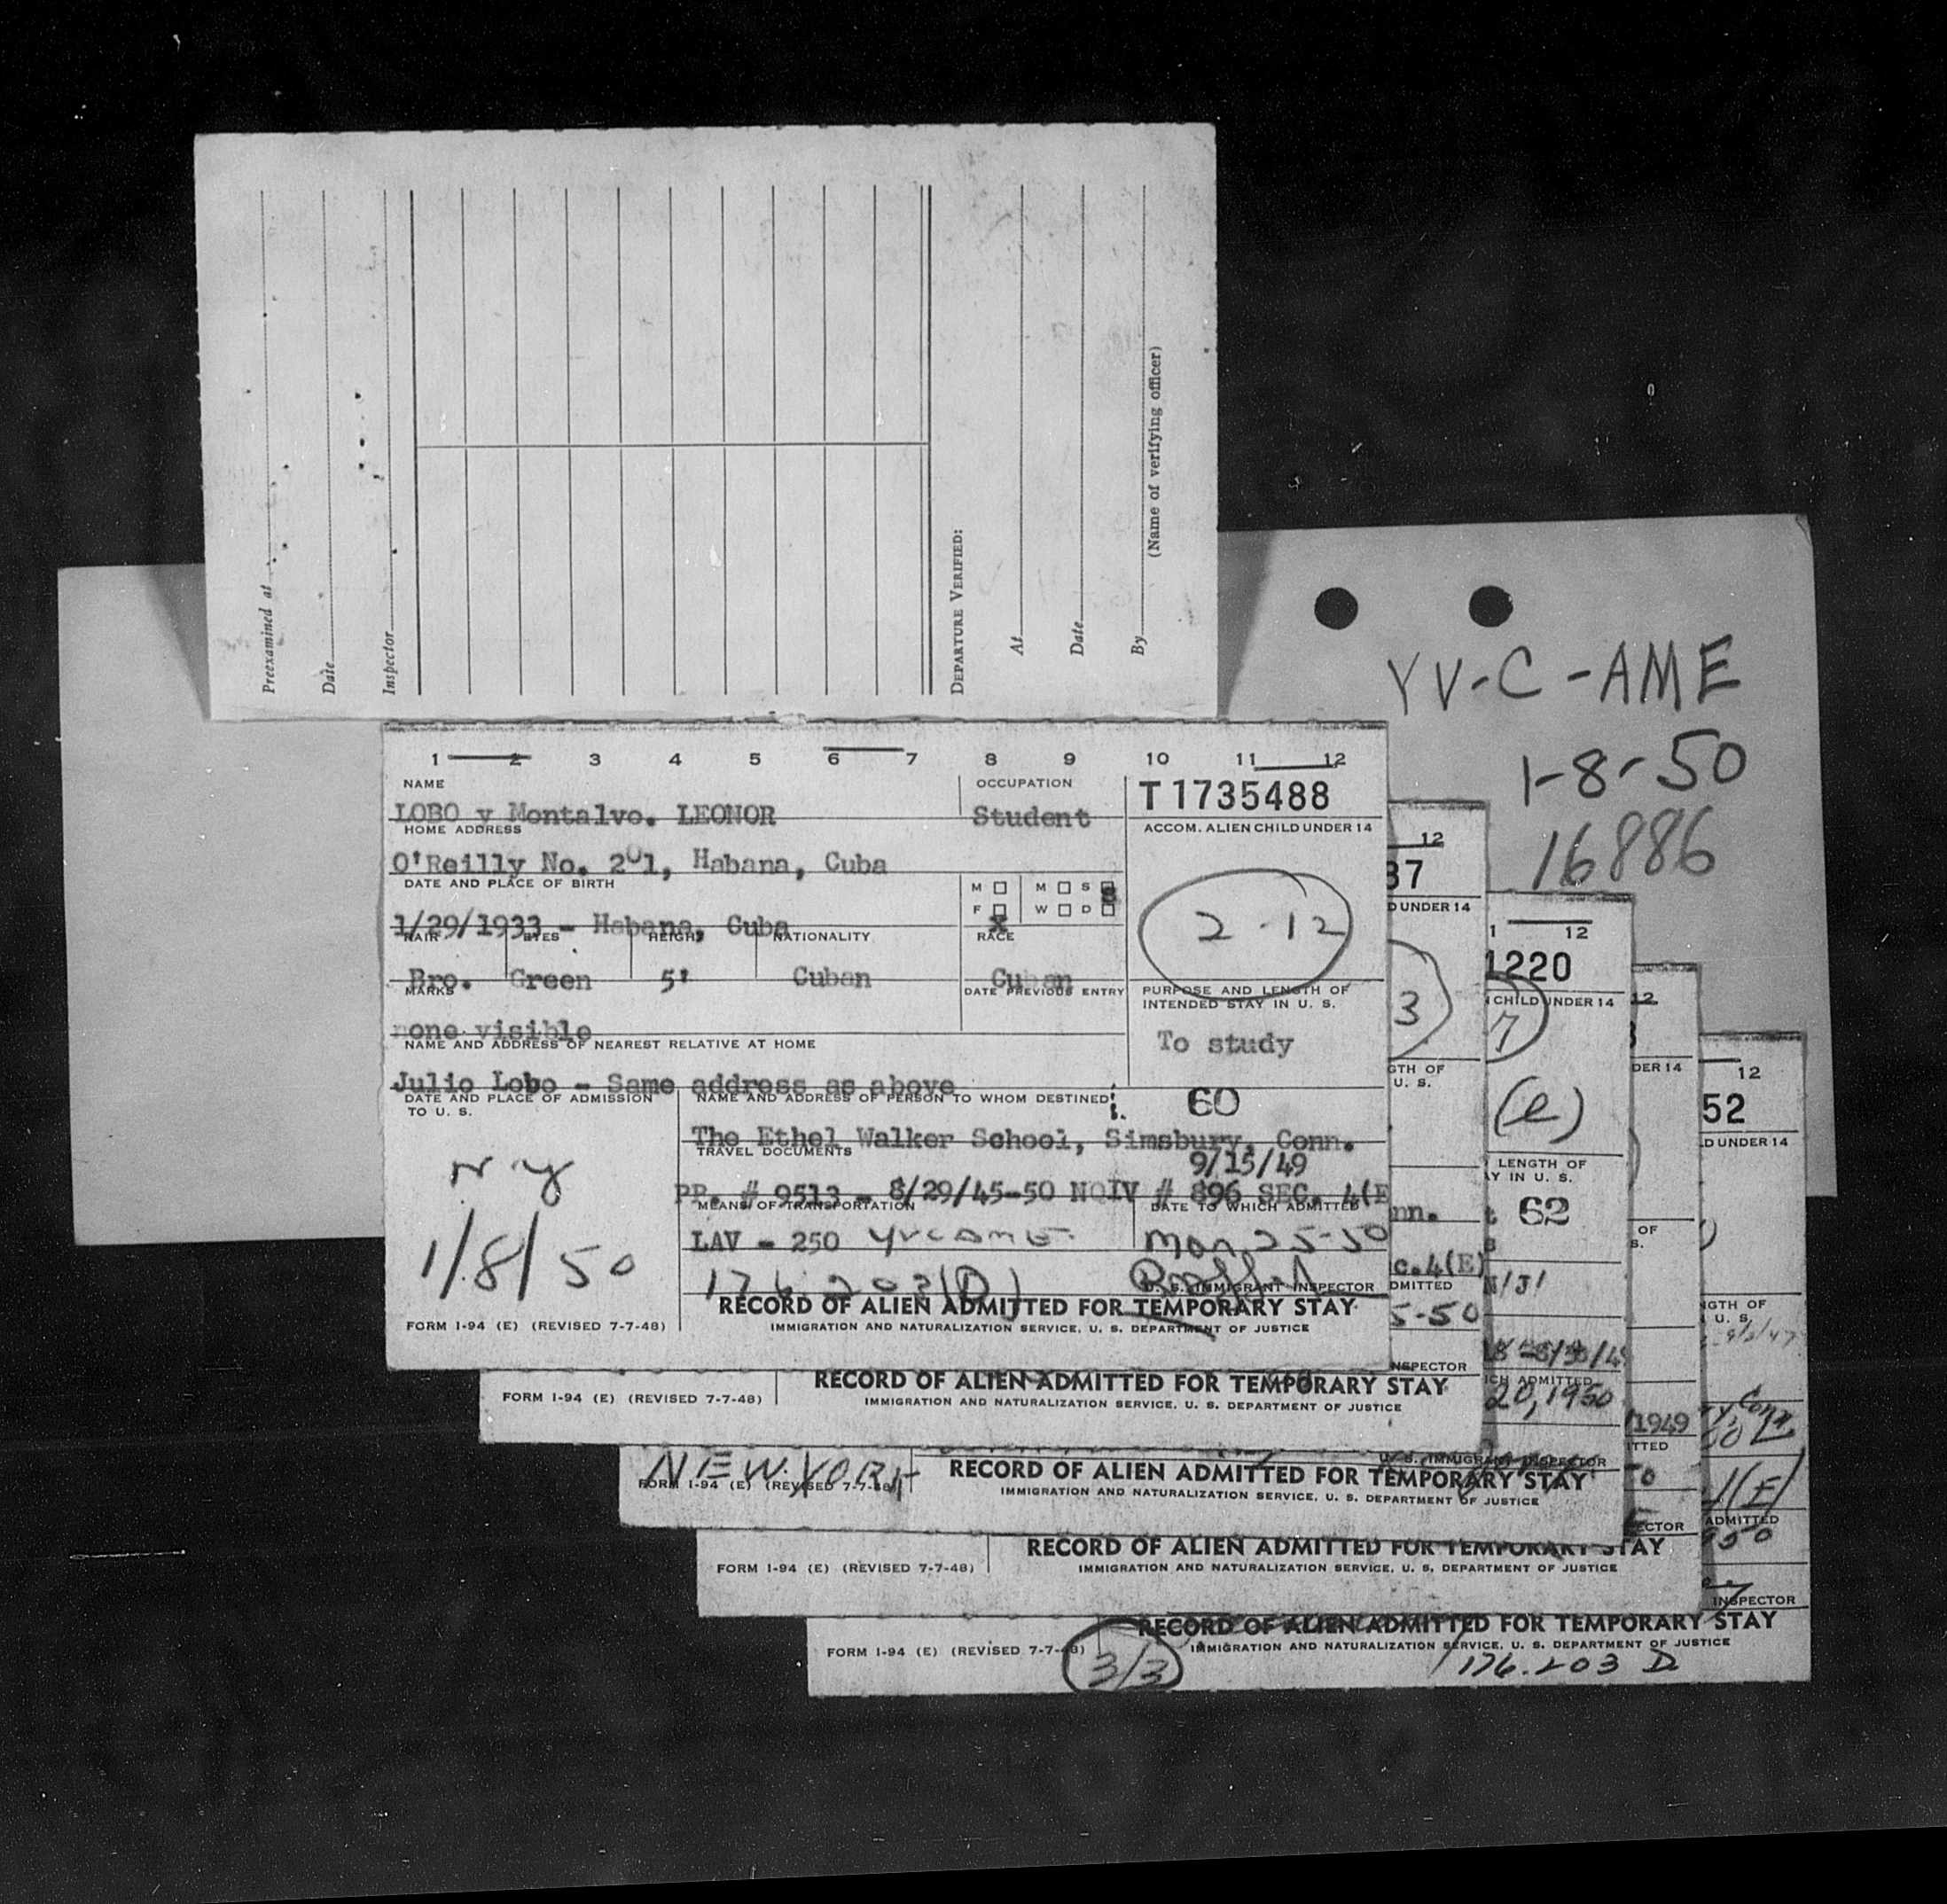 Preexamined at
Date
Inspector
DEPARTURE VERIFIED:
At
Date
By
(Name of verifying officer)
YV-C-AME
1-8-50
16886
1 2 3 4 5 6 7 8 9 10 11 12
NAME
OCCUPATION
T1735488
LOBO y Montalvo. LEONOR
Student
HOME ADDRESS
ACCOM. ALIEN CHILD UNDER 14
O'Reilly No. 201, Habana, Cuba
DATE AND PLACE OF BIRTH
M M S S
F W D
X
2-12
1/29/1933 - Habana, Cuba
HAIR EYES HEIGHT NATIONALITY RACE
Bro. Green 5' Cuban Cuban
MARKS
DATE PREVIOUS ENTRY
PURPOSE AND LENGTH OF
INTENDED STAY IN U. S.
none visible
To study
NAME AND ADDRESS OF NEAREST RELATIVE AT HOME
Julio Lobo - Same address as above
DATE AND PLACE OF ADMISSION
TO U. S.
NAME AND ADDRESS OF PERSON TO WHOM DESTINED
60
The Ethel Walker School, Simsbury, Conn.
TRAVEL DOCUMENTS
9/15/49
PP. # 9513 - 8/29/45-50 NQIV # 896 SEC. 4(E
MEANS OF TRANSPORTATION
DATE TO WHICH ADMITTED
N Y
1/8/50
LAV - 250 YVCAME
Mar 25-50
176203(D)
U. S. IMMIGRANT INSPECTOR
RECORD OF ALIEN ADMITTED FOR TEMPORARY STAY
FORM I-94 (E) (REVISED 7-7-48)
IMMIGRATION AND NATURALIZATION SERVICE, U. S. DEPARTMENT OF JUSTICE
12
37
D UNDER 14
3
GTH OF
U. S.
nn.
c.4(E)
DMITTED
5-50
NSPECTOR
RECORD OF ALIEN ADMITTED FOR TEMPORARY STAY
FORM I-94 (E) (REVISED 7-7-48)
IMMIGRATION AND NATURALIZATION SERVICE, U. S. DEPARTMENT OF JUSTICE
1 12
1220
CHILD UNDER 14
7
(e)
LENGTH OF
AY IN U. S.
62
ICH ADMITTED
20, 1950
U. S. IMMIGRANT INSPECTOR
NEW YORK
RECORD OF ALIEN ADMITTED FOR TEMPORARY STAY
FORM I-94 (E) (REVISED 7-7-48)
IMMIGRATION AND NATURALIZATION SERVICE, U. S. DEPARTMENT OF JUSTICE
12
DER 14
OF
S.
1949
ITTED
50
ECTOR
RECORD OF ALIEN ADMITTED FOR TEMPORARY STAY
FORM I-94 (E) (REVISED 7-7-48)
IMMIGRATION AND NATURALIZATION SERVICE, U. S. DEPARTMENT OF JUSTICE
12
52
D UNDER 14
NGTH OF
U. S.
Conn
(E)
ADMITTED
950
INSPECTOR
RECORD OF ALIEN ADMITTED FOR TEMPORARY STAY
FORM I-94 (E) (REVISED 7-7-48)
IMMIGRATION AND NATURALIZATION SERVICE, U. S. DEPARTMENT OF JUSTICE
3/3
176.203 D